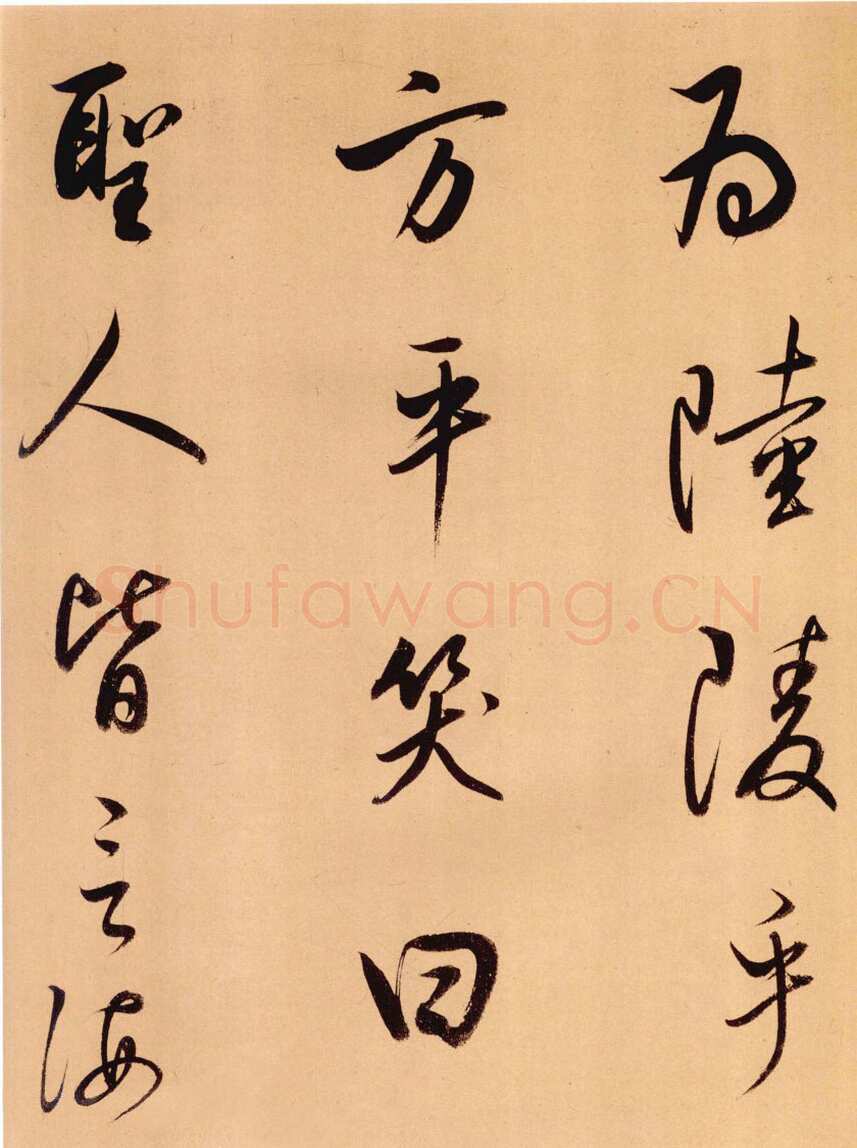 为陸陵乎
方平笑曰
聖人皆言海
Shufawang.CN